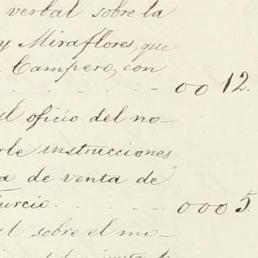 verbal sobre la
y Miraflores, que
Campero, con
0012.
el oficio del no-
rle instrucciones
a de venta de
Turcio. 0005.
l sobre el mo-